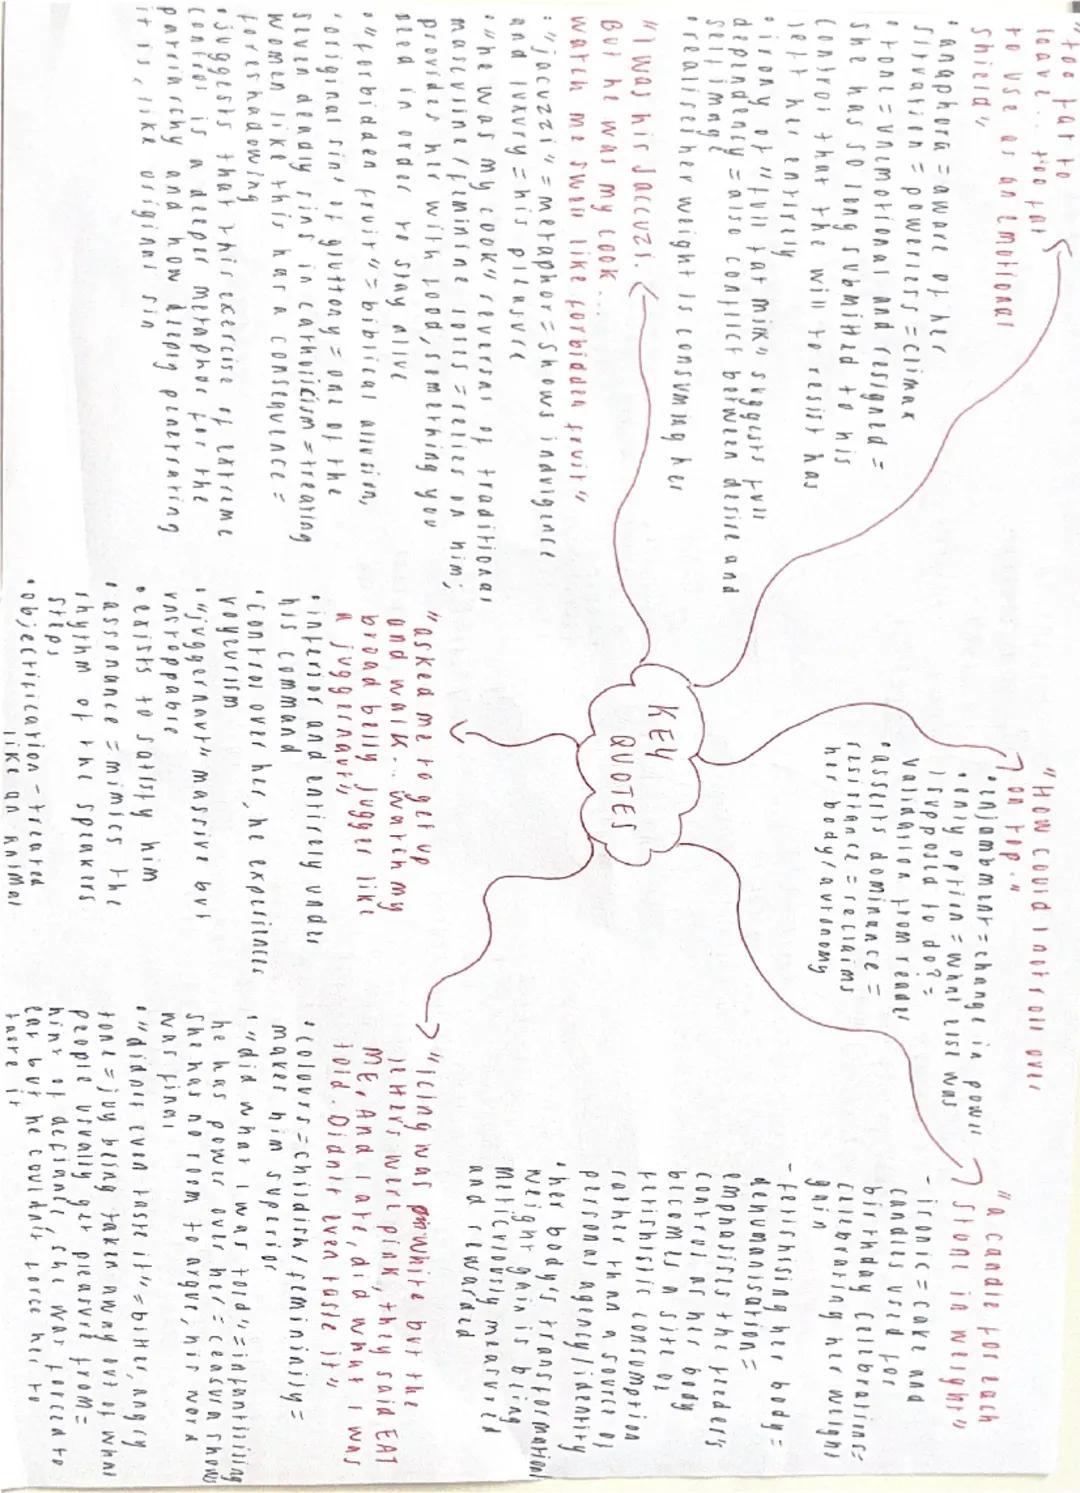 KEY
QUOTES
"too fat to
leave... too fat
to use as an emotional
shield"
• anaphora = aware of her
situation = powerless = climax
• tone = unemotional and resigned =
she has so long submitted to his
control that the will to resist has
left her entirely
• irony of "full fat milk" suggests full
dependency = also conflict between desire and
self image
• realises her weight is consuming her
"I was his Jacuzzi.
But he was my cook...
watch me swell like forbidden fruit"
• "jacuzzi" = metaphor = shows indulgence
and luxury = his pleasure
• "he was my cook" reversal of traditional
masculine/feminine roles = relies on him;
provides her with food, something you
need in order to stay alive
• "forbidden fruit" = biblical allusion,
'original sin' of gluttony = one of the
seven deadly sins in catholicism = treating
women like this has a consequence =
foreshadowing
• suggests that this exercise of extreme
control is a deeper metaphor for the
patriarchy and how deeply penetrating
it is, like original sin
"How could I not roll over
on top."
• enjambment = change in power
• only option = what else was
I supposed to do? =
validation from reader
• asserts dominance =
resistance = reclaims
her body/autonomy
"asked me to get up
and walk... watch my
broad belly jugger like
a juggernaut"
• inferior and entirely under
his command
• control over her, he experiences
voyeurism
• "juggernaut" massive but
unstoppable
• exists to satisfy him
• assonance = mimics the
rhythm of the speakers
steps
• objectification - treated
like an animal
"a candle for each
stone in weight"
- ironic = cake and
candles used for
birthday celebrations =
celebrating her weight
gain
- fetishising her body =
dehumanisation =
emphasises the feeder's
control as her body
becomes a site of
fetishistic consumption
rather than a source of
personal agency/identity
• her body's transformational
weight gain is being
meticulously measured
and rewarded
"icing was white but the
letters were pink, they said EAT
ME. And I ate, did what I was
told. Didn't even taste it"
• colours = childish/femininity =
makes him superior
• "did what I was told" = infantilising
he has power over her = ceasura shows
she has no room to argue, his word
was final
• "didn't even taste it" = bitter, angry
tone = joy being taken away out of what
people usually get pleasure from =
hint of defiance, she was forced to
eat but he couldn't force her to
taste it